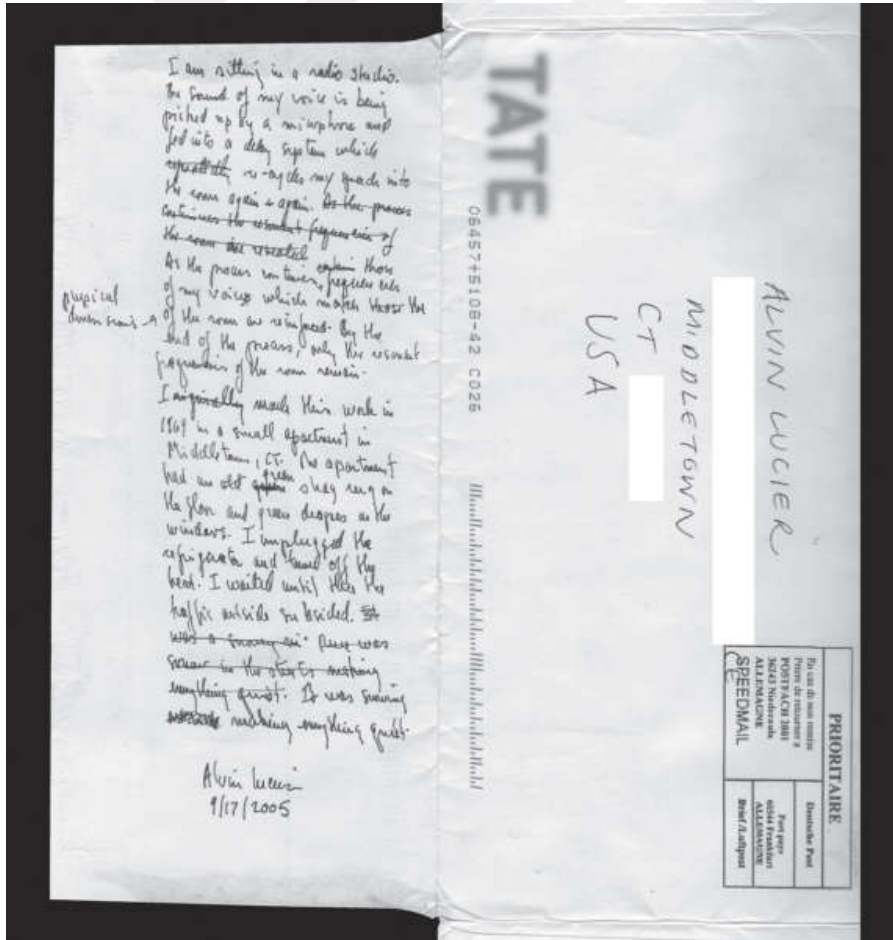 I am sitting in a radio studio.
The sound of my voice is being
picked up by a microphone and
fed into a delay system which
repeatedly re-cycles my speech into
the room again + again. As the process
continues the resonant frequencies of
the room are revealed
As the process continues, those frequencies
of my voice which match those the
physical
dimensions → of the room are reinforced. By the
end of the process, only the resonant
frequencies of the room remain.
I originally made this work in
1969 in a small apartment in
Middletown, CT. The apartment
had an old green shag rug on
the floor and green drapes on the
windows. I unplugged the
refrigerator and turned off the
heat. I waited until the
traffic outside subsided. It
was a snowy There was
snow in the streets making
everything quiet. It was snowing
making everything quiet.
Alvin Lucier
9/17/2005
TATE
06457+5108-42 C026
ALVIN LUCIER
MIDDLETOWN
CT
USA
PRIORITAIRE
En cas de non remise
Prière de retourner à
POSTFACH 2001
36243 Niederaula
ALLEMAGNE
SPEEDMAIL
CE
Deutsche Post
Port payé
60544 Frankfurt
ALLEMAGNE
Brief/Luftpost